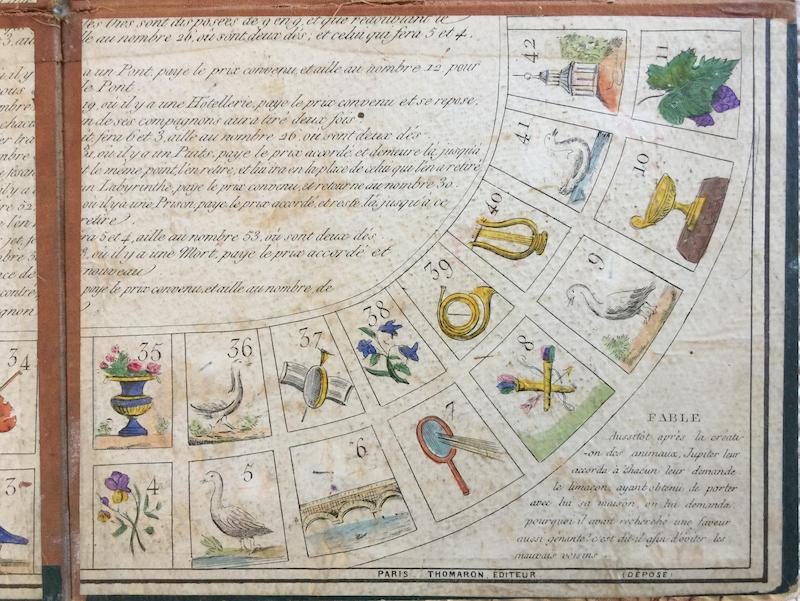 les Oies sont disposées de 9 en 9, et que redoublant le
lle au nombre 26, où sont deux dés; et celui qui fera 5 et 4,
a un Pont, paye le prix convenu, et aille au nombre 12, pour
le Pont
19, où il y a une Hôtellerie, paye le prix convenu et se repose,
n de ses compagnons aura tiré deux fois
it, fera 6 et 3, aille au nombre 26, où sont deux dés
où il y a un Puits, paye le prix accordé, et demeure là, jusqu'à
t le même point, l'en retire, et lui ira en la place de celui qui l'en a retiré
n Labyrinthe, paye le prix convenu, et retourne au nombre 30
où il y a une Prison, paye le prix accordé, et reste là, jusqu'à ce
retire
ra 5 et 4, aille au nombre 53, où sont deux dés
, où il y a une Mort, paye le prix accordé et
nouveau
paye le prix convenu, et aille au nombre, de
42
11
41
10
40
9
39
38
8
37
36
35
34
7
6
5
4
3
FABLE
Aussitôt après la créati-
-on des animaux, Jupiter leur
accorda à chacun leur demande
le limaçon ayant obtenu de porter
avec lui sa maison, on lui demanda
pourquoi il avait recherché une faveur
aussi gênante? c'est dit-il afin d'éviter les
mauvais voisins
PARIS THOMARON, ÉDITEUR (DÉPOSÉ)